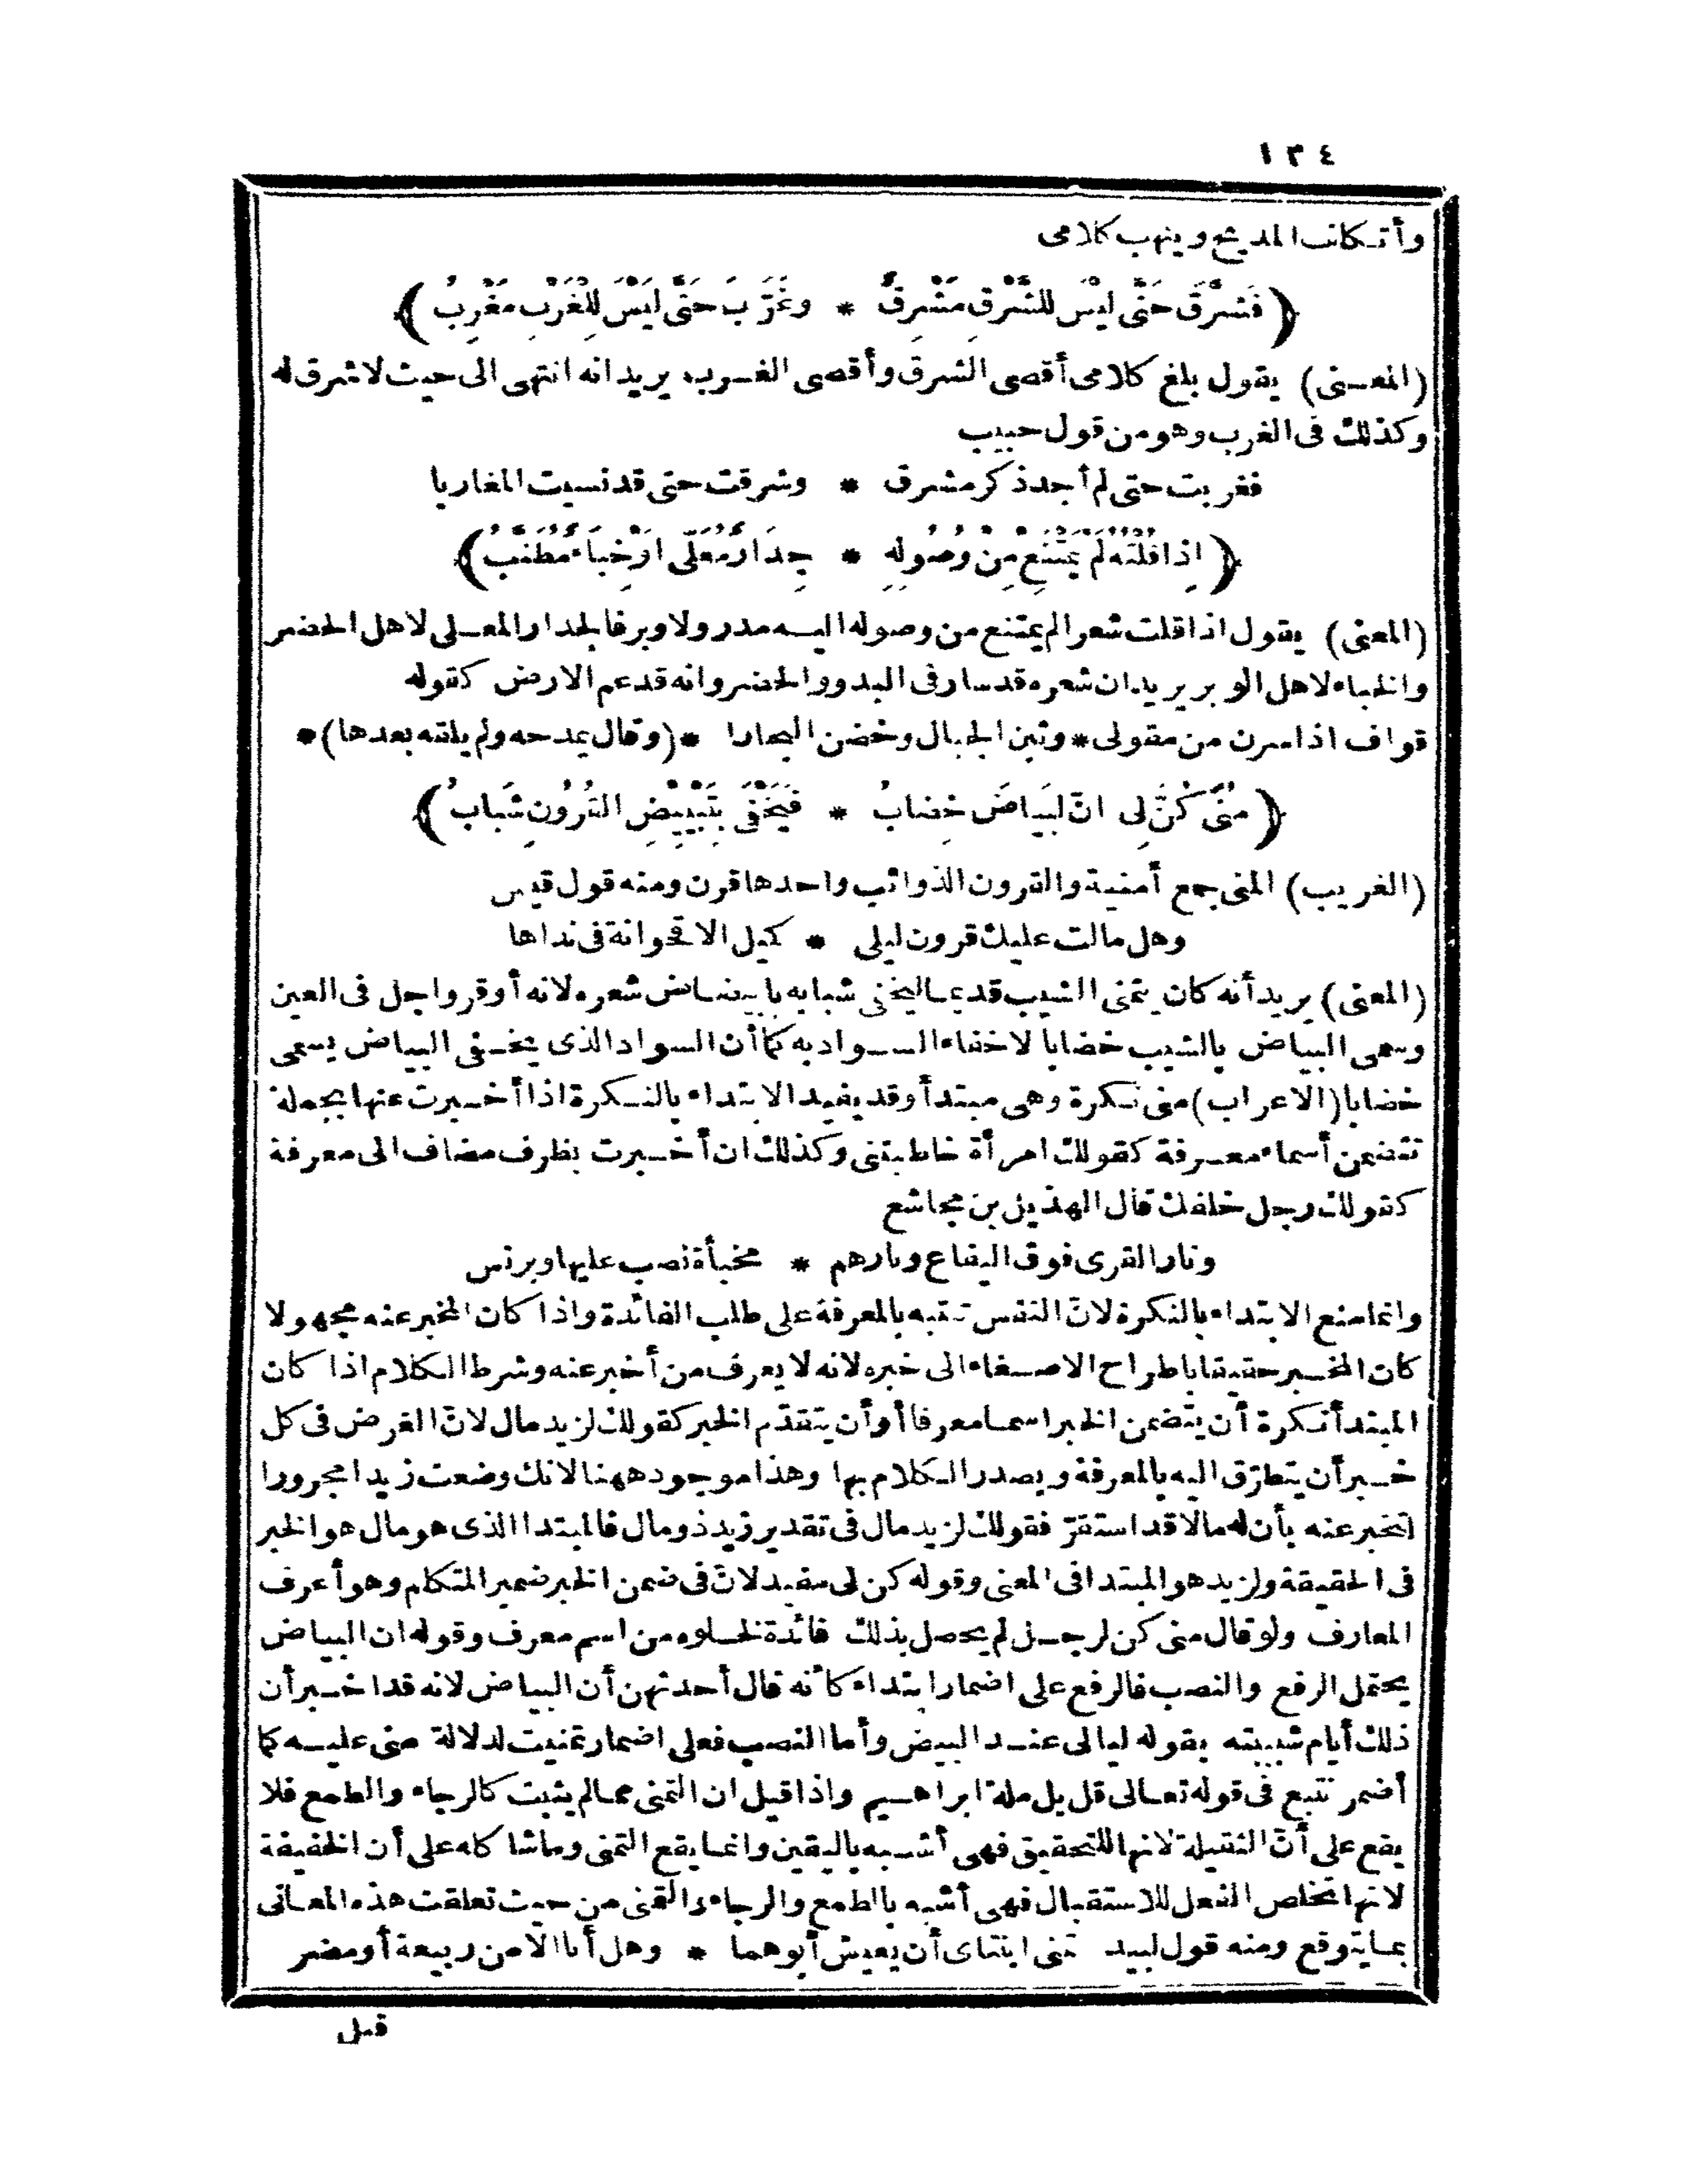 ١٣٤
وأتكلف المديح وينهب كلامى
﴿ فَشَرَّقَ حَتَّى لَيْسَ لِلشَّرْقِ مَشْرِقٌ * وغَرَّبَ حَتَّى لَيْسَ لِلْغَرْبِ مَغْرِبُ ﴾
(المعنى) يقول بلغ كلامى أقصى الشرق وأقصى الغرب يريد انه انتهى الى حيث لا شرق له
وكذلك فى الغرب وهو من قول حبيب
فغربت حتى لم أجد ذكر مشرق * وشرقت حتى قد نسيت المغاربا
﴿ اِذا قُلْتُهُ لَمْ يَمْتَنِعْ مِنْ وُصُولِهِ * جِدَارٌ مُعَلَّى اَوْ خِبَاءٌ مُطَنَّبُ ﴾
(المعنى) يقول اذا قلت شعرا لم يمتنع من وصوله اليه مدر ولا وبر فالجدار المعلى لاهل الحضر
والخباء لاهل الوبر يريد ان شعره قد سار فى البدو والحضر وانه قد عم الارض كقوله
قواف اذا سرن من مقولى * وثبن الجبال وخضن البحارا *(وقال يمدحه ولم يلقه بعدها)*
﴿ مُنًى كُنَّ لِى انّ البَيَاضَ خِضابُ * فَيَخْفَى بِتَبْيِيْضِ القُرُونِ شَبابُ ﴾
(الغريب) المنى جمع أمنية والقرون الذوائب واحدها قرن ومنه قول قيس
وهل مالت عليك قرون ليلى * كميل الاقحوانة فى نداها
(المعنى) يريد أنه كان يتمنى الشيب قديما ليخفى شبابه بابيضاض شعره لانه أوقر واجل فى العين
وسمى البياض بالشيب خضابا لاخفاء السواد به كما أن السواد الذى يخفى البياض يسمى
خضابا (الاعراب) منى نكرة وهى مبتدأ وقد يفيد الابتداء بالنكرة اذا أخبرت عنها بجملة
تتضمن أسماء معرفة كقولك امرأة خاطبتنى وكذلك ان أخبرت بظرف مضاف الى معرفة
كقولك رجل خلفك قال الهذيل بن مجاشع
ونار القرى فوق اليفاع ونارهم * مخبأة نصب عليها وبرنس
وانما منع الابتداء بالنكرة لانّ النفس تنتبه بالمعرفة على طلب الفائدة واذا كان المخبر عنه مجهولا
كان المخبر حقيقا باطراح الاصغاء الى خبره لانه لا يعرف من أخبر عنه وشرط الكلام اذا كان
المبتدأ نكرة أن يتضمن الخبر اسما معرفا أو أن يتقدّم الخبر كقولك لزيد مال لانّ الغرض فى كل
خبر أن يتطرّق اليه بالمعرفة ويصدر الكلام بها وهذا موجود ههنا لانك وضعت زيدا مجرورا
لتخبر عنه بأن له مالا قد استقرّ فقولك لزيد مال فى تقدير زيد ذو مال فالمبتدا الذى هو مال هو الخبر
فى الحقيقة ولزيد هو المبتدا فى المعنى وقوله كن لى مفيد لانّ فى ضمن الخبر ضمير المتكلم وهو أعرف
المعارف ولو قال منى كن لرجل لم يحصل بذلك فائدة لخلوه من اسم معرف وقوله ان البياض
يحتمل الرفع والنصب فالرفع على اضمار ابتداء كأنه قال أحدتهن أن البياض لانه قد اخبر أن
ذلك أيام شبيبته بقوله ليالى عند البيض وأما النصب فعلى اضمار تمنيت لدلالة منى عليه كما
أضمر نتبع فى قوله تعالى قل بل ملة ابراهيم واذا قيل ان التمنى مما لم يثبت كالرجاء والطمع فلا
يقع على أنّ الثقيلة لانها للتحقيق فهى أشبه باليقين وانما يقع التمنى وما شاكله على أن الخفيفة
لانها تخلص الفعل للاستقبال فهى أشبه بالطمع والرجاء والتمنى من حيث تعلقت هذه المعانى
بما يتوقع ومنه قول لبيد تمنى ابنتاى أن يعيش أبوهما * وهل أنا الا من ربيعة أو مضر
قيل